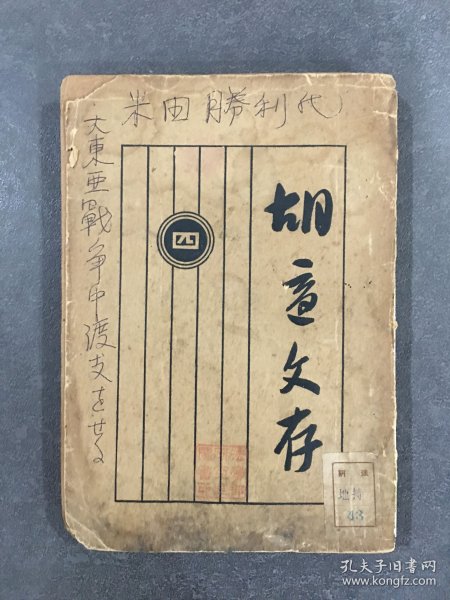 米田勝利代
大東亜戰争中渡支をせる
四
胡適文存
地
43
孔夫子旧书网
www.kongfz.com